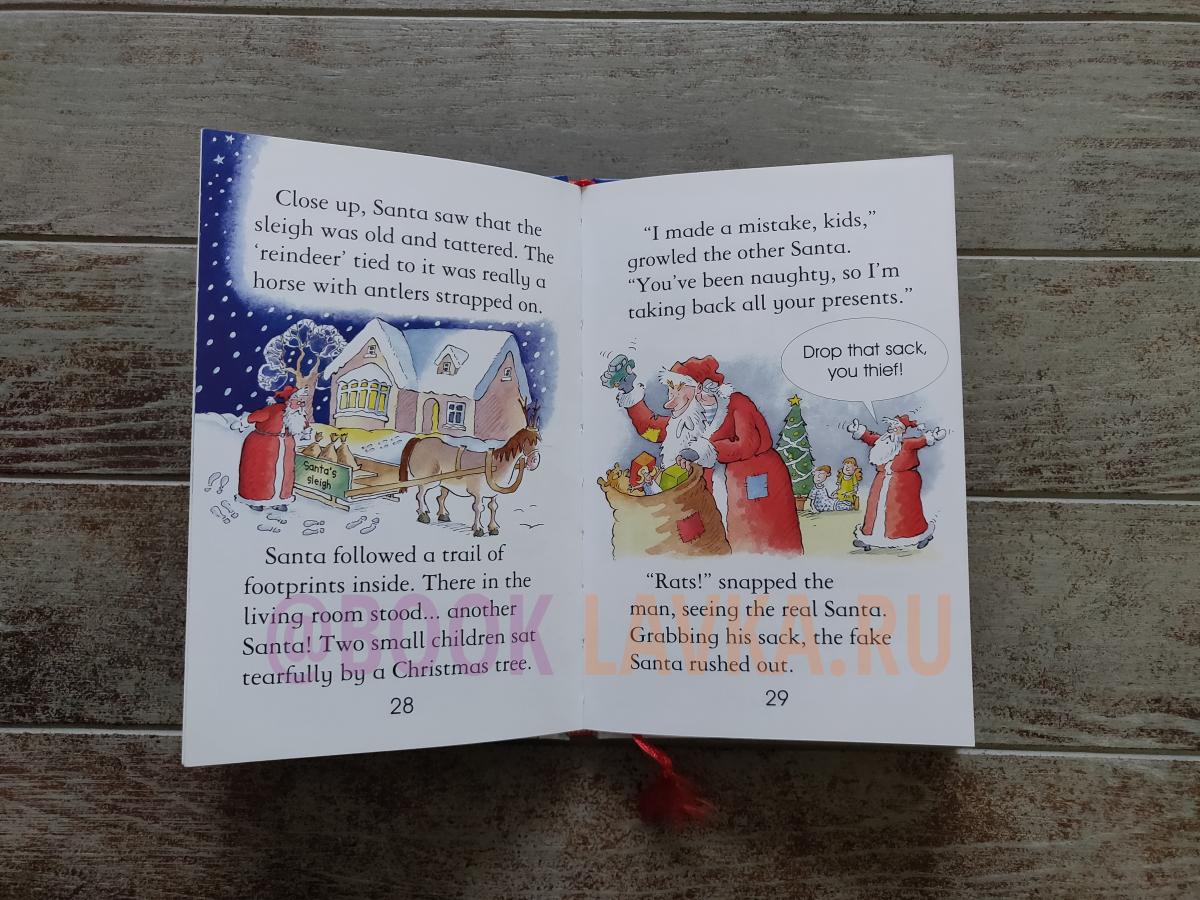 Close up, Santa saw that the
sleigh was old and tattered. The
‘reindeer’ tied to it was really a
horse with antlers strapped on.
Santa's
sleigh
Santa followed a trail of
footprints inside. There in the
living room stood... another
Santa! Two small children sat
tearfully by a Christmas tree.
28
“I made a mistake, kids,”
growled the other Santa.
“You’ve been naughty, so I’m
taking back all your presents.”
Drop that sack,
you thief!
“Rats!” snapped the
man, seeing the real Santa.
Grabbing his sack, the fake
Santa rushed out.
29
@BOOK LAVKA.RU